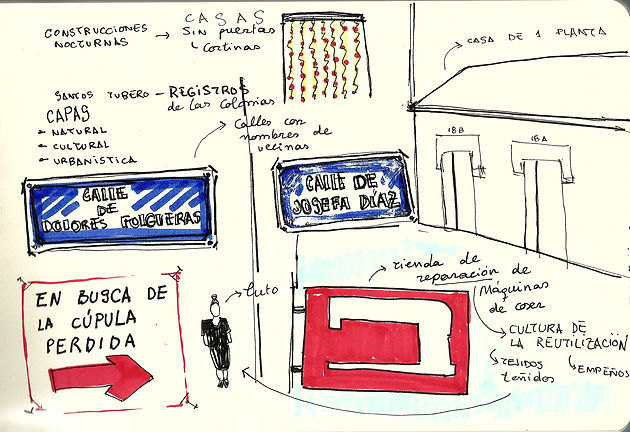 CONSTRUCCIONES
NOCTURNAS
CASAS
Sin puertas
Cortinas
CASA DE 1 PLANTA
SANTOS TUBERO - REGISTROS
de las Colonias
CAPAS
- NATURAL
- CULTURAL
- URBANÍSTICA
Calles con
nombres de
vecinas
18B
18A
CALLE
DE
DOLORES FOLGUERAS
CALLE DE
JOSEFA DÍAZ
EN BUSCA DE
LA CÚPULA
PERDIDA
luto
tienda de
reparación de
Máquinas
de coser
CULTURA DE
LA REUTILIZACIÓN
TEJIDOS
teñidos
EMPEÑOS